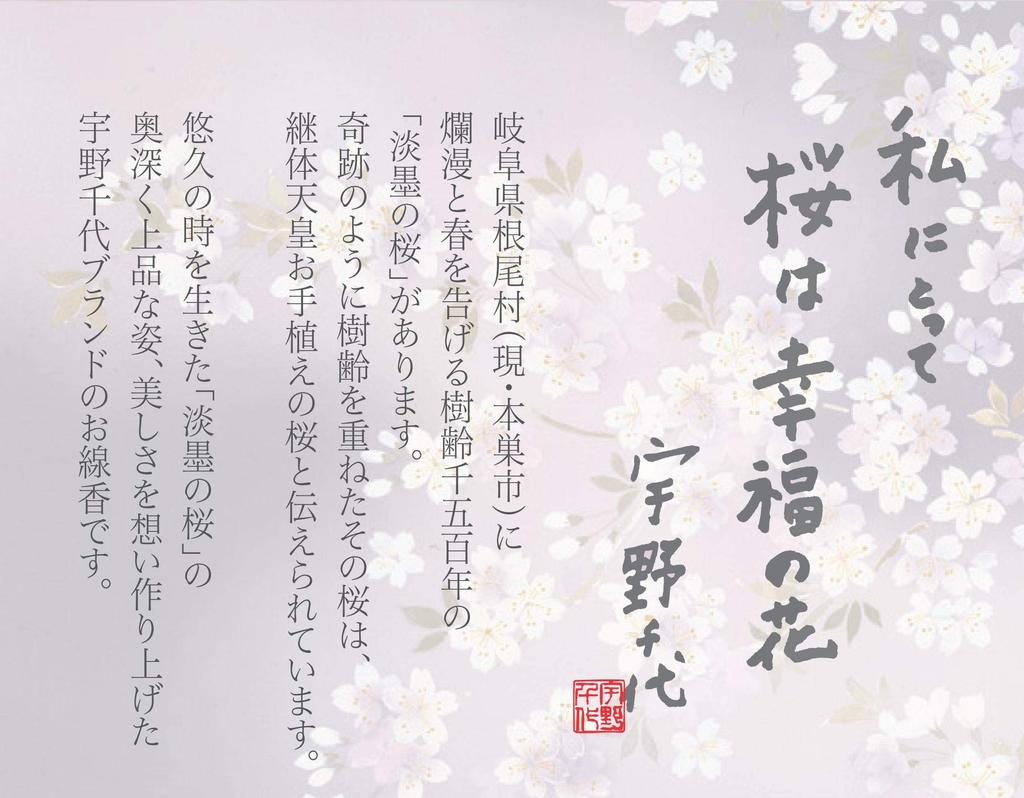 私にとって
桜は幸福の花
宇野千代
宇野
千代
岐阜県根尾村（現・本巣市）に
爛漫と春を告げる樹齢千五百年の
「淡墨の桜」があります。
奇跡のように樹齢を重ねたその桜は、
継体天皇お手植えの桜と伝えられています。
悠久の時を生きた「淡墨の桜」の
奥深く上品な姿、美しさを想い作り上げた
宇野千代ブランドのお線香です。